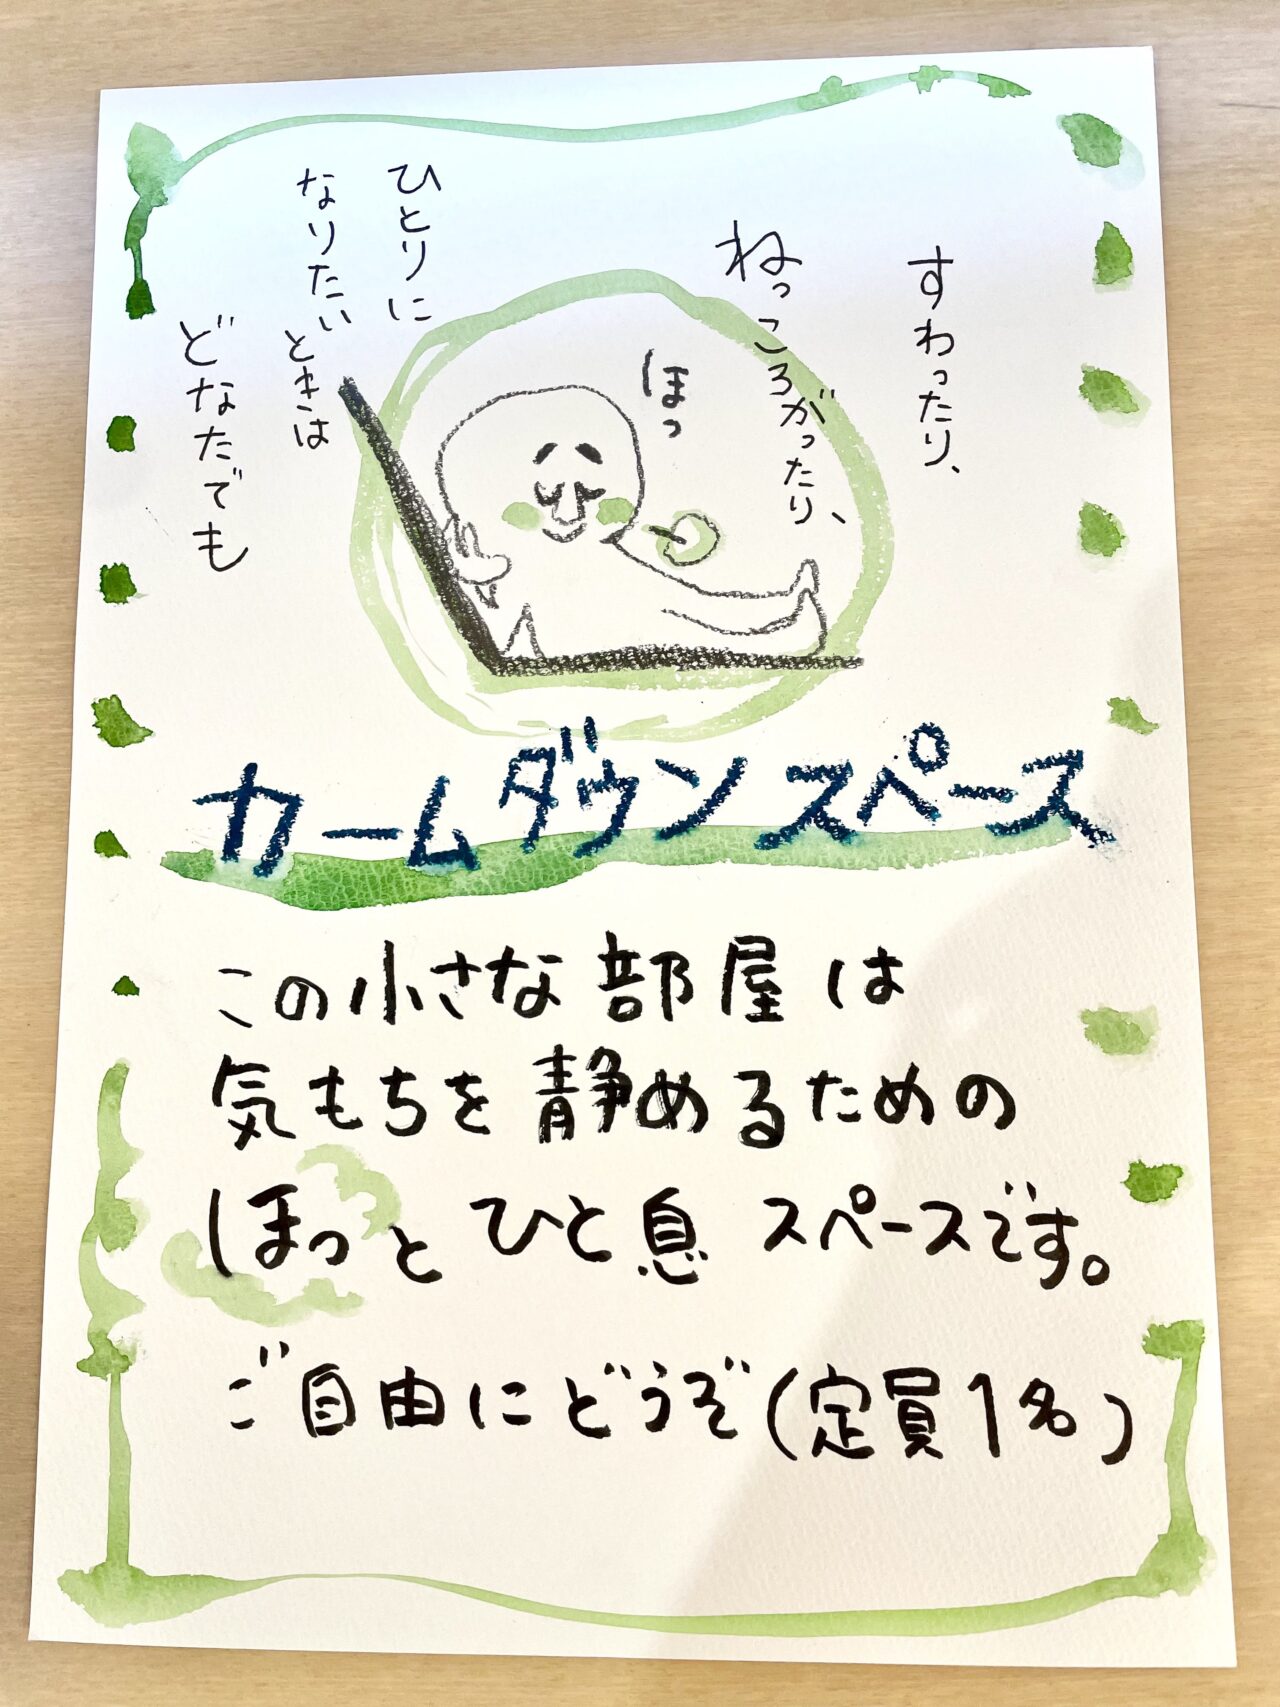 すわったり、
ねっころがったり、
ほっ
ひとりに
なりたいときは
どなたでも
カームダウンスペース
この小さな部屋は
気もちを静めるための
ほっとひと息スペースです。
ご自由にどうぞ(定員1名)